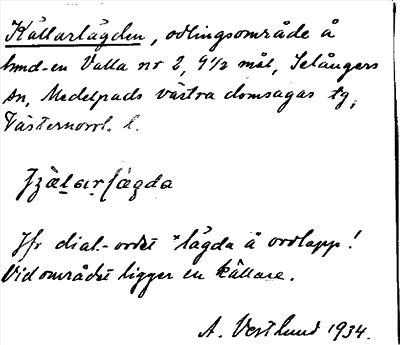 Källarlägden, odlingsområde å
hmd-en Valla nr 2, 9 1/2 mål, Selångers
sn, Medelpads västra domsagas tg,
Västernorrl. l.
Jfr dial.-ordet *lägda å ordlapp!
Vid området ligger en källare.
A. Vestlund 1934.